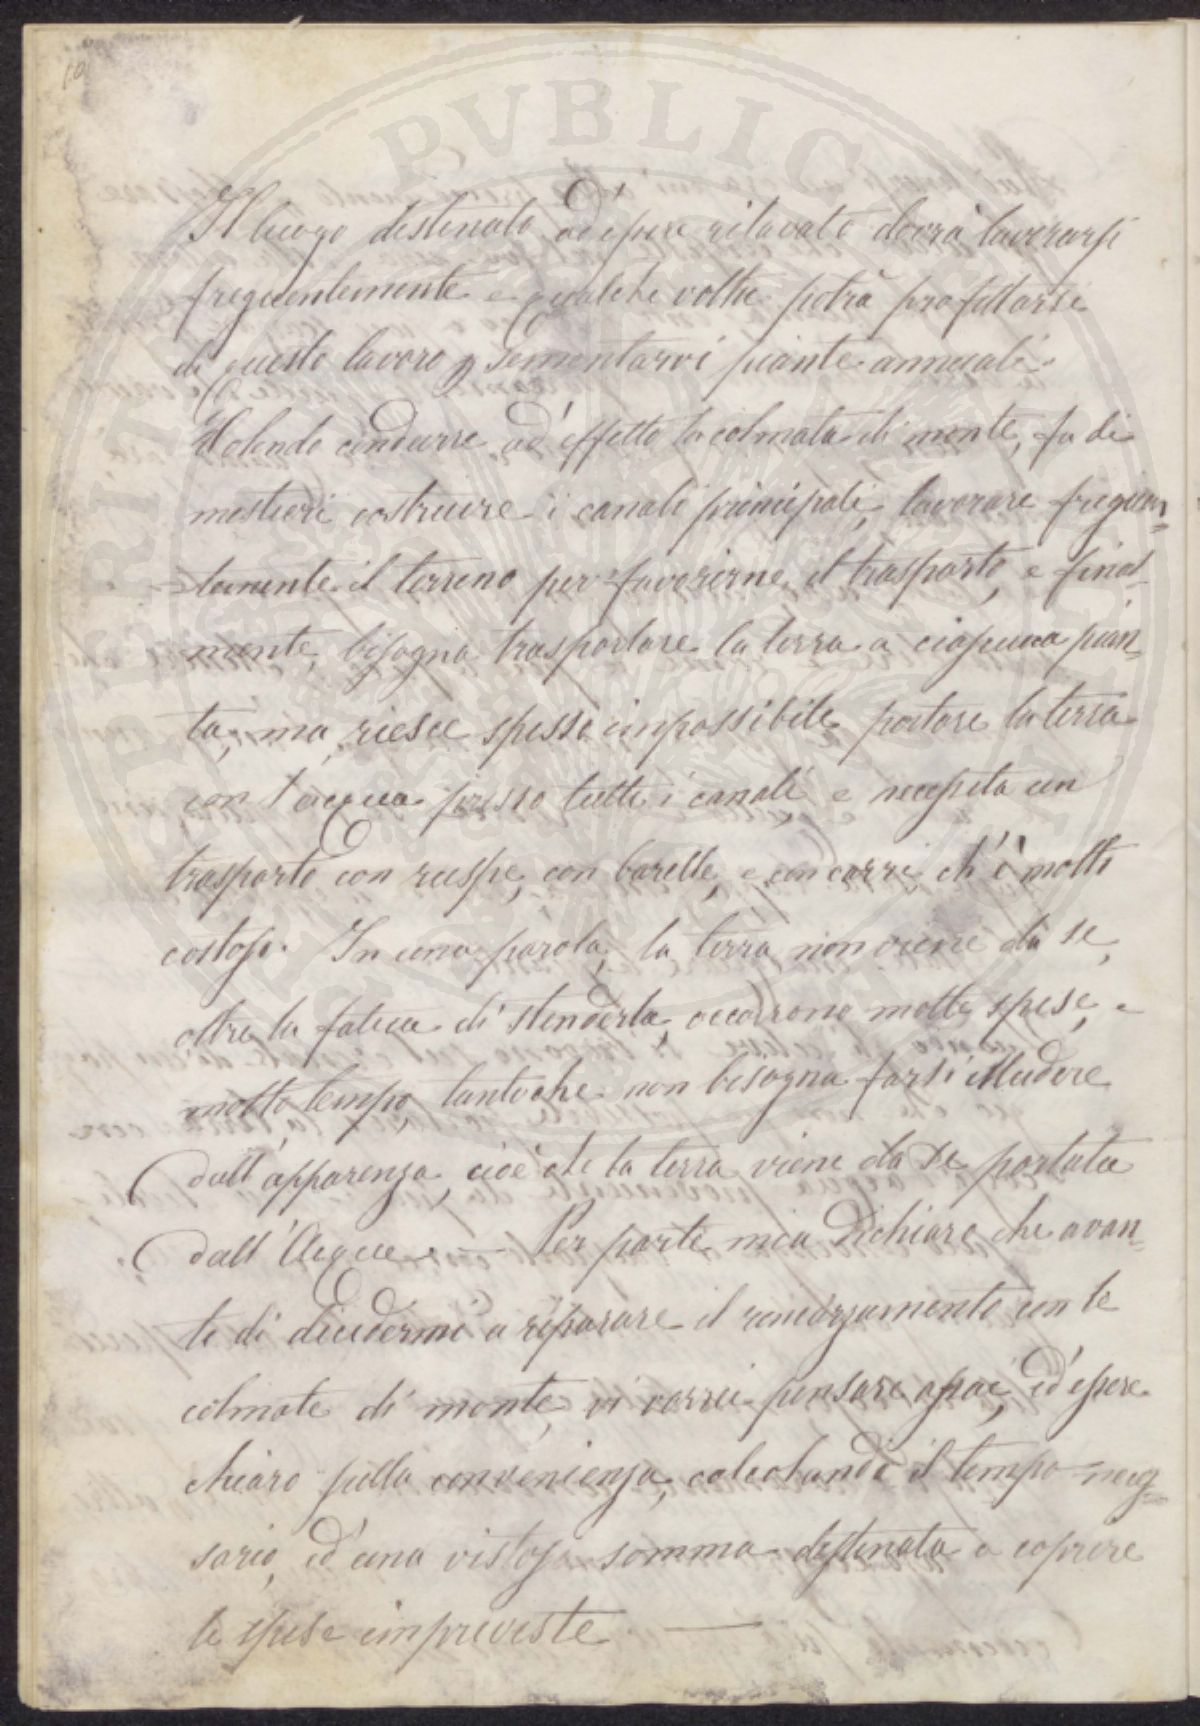 10
Il luogo destinato ad essere rilavato dovrà lavorarsi
frequentemente e qualche volta potrà profittarsi
di questo lavoro p sementarvi piante annuali.
Volendo condurre ad effetto la colmata di monte, fa di
mestieri costruire i canali principali, lavorare frequen=
=temente il terreno per favorirne il trasporto, e final=
mente, bisogna trasportare la terra a ciascuna pian=
ta, ma riesce spesso impossibile portare la terra
con l'acqua presso tutti i canali e necessita un
trasporto con ruspe, con barelle, e con carri, ch'è molto
costoso. In una parola, la terra non viene da se,
oltre la fatica di stenderla, occorrono molte spese, e
molto tempo, tantoche non bisogna farsi illudere
dall'apparenza, cioè che la terra viene da se portata
dall'Acqua. — Per parte mia dichiaro che avan=
te di decidermi a riparare il con le
colmate di monte, vi vorrei pensare assai, ed essere
chiaro sulla convenienza, calcolando il tempo neces=
sario, ed una vistosa somma destinata a coprire
le spese impreviste. —
PVBLIC